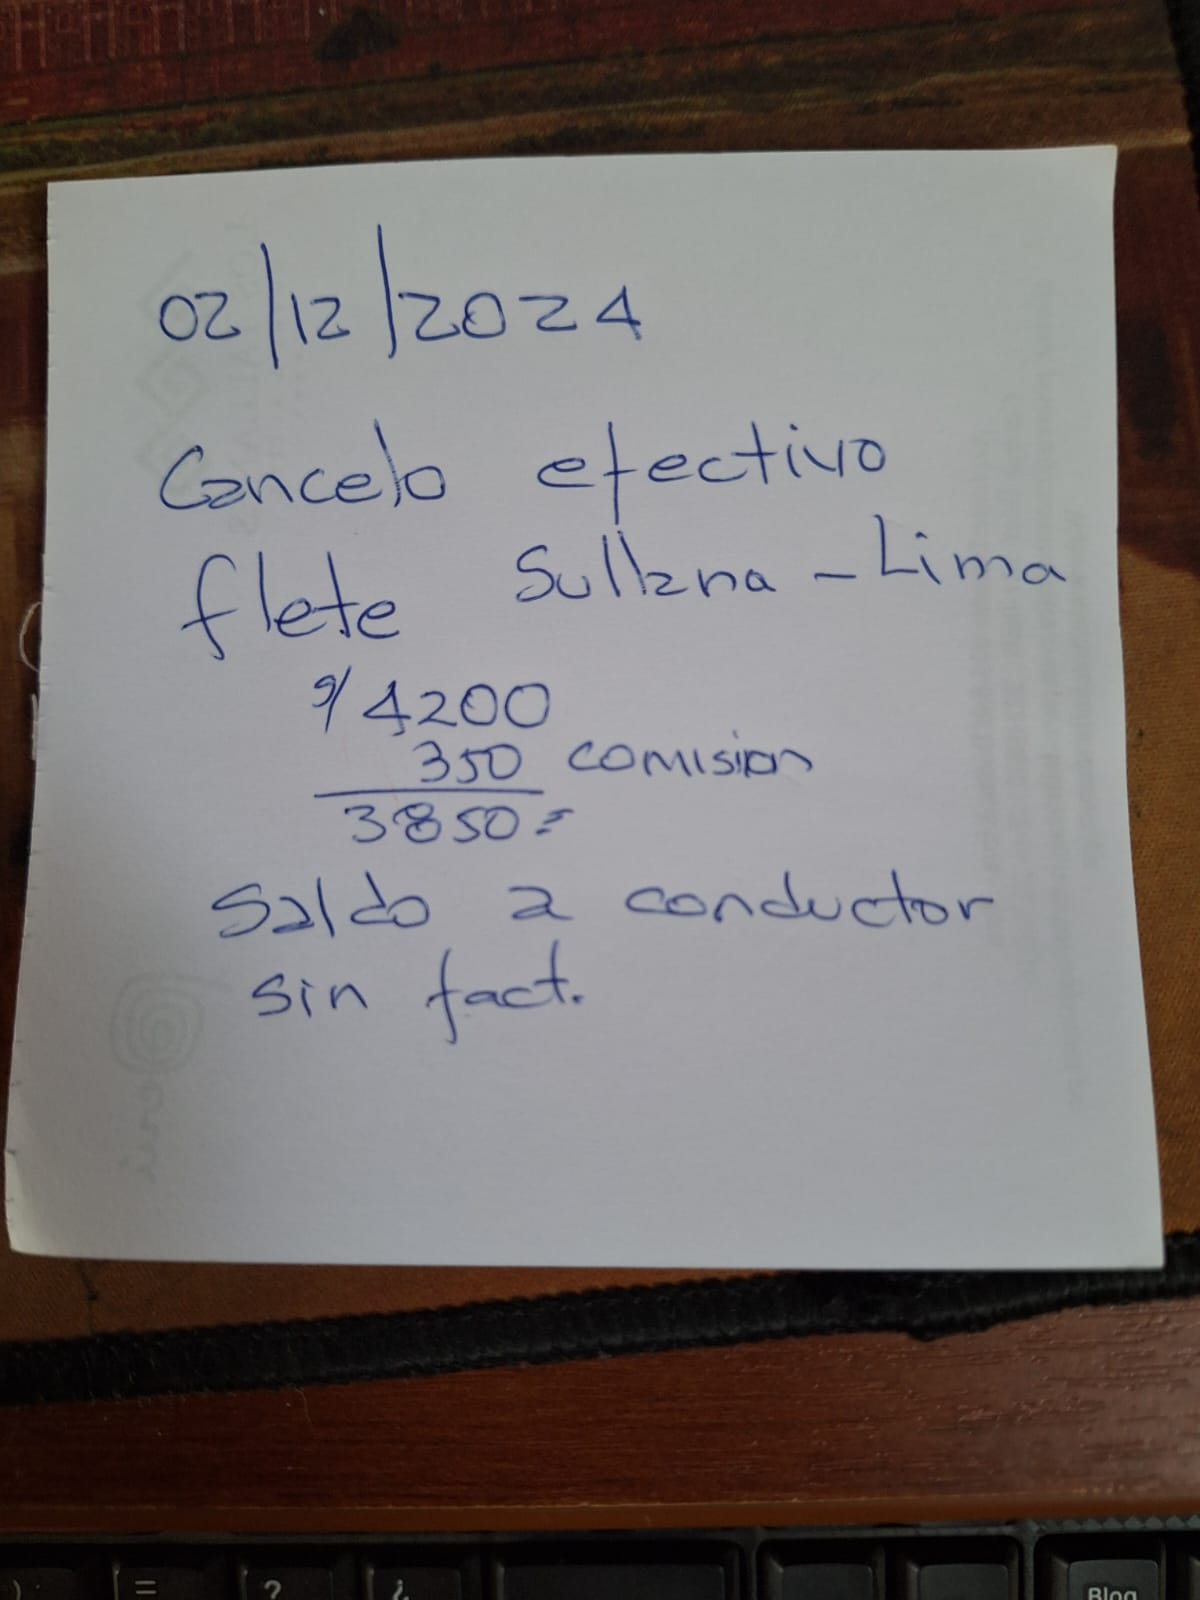 02/12/2024
Cancelo efectivo
flete Sullana - Lima
S/ 4200
350 comision
3850=
Saldo a conductor
sin fact.
=
?
¿
Bloq